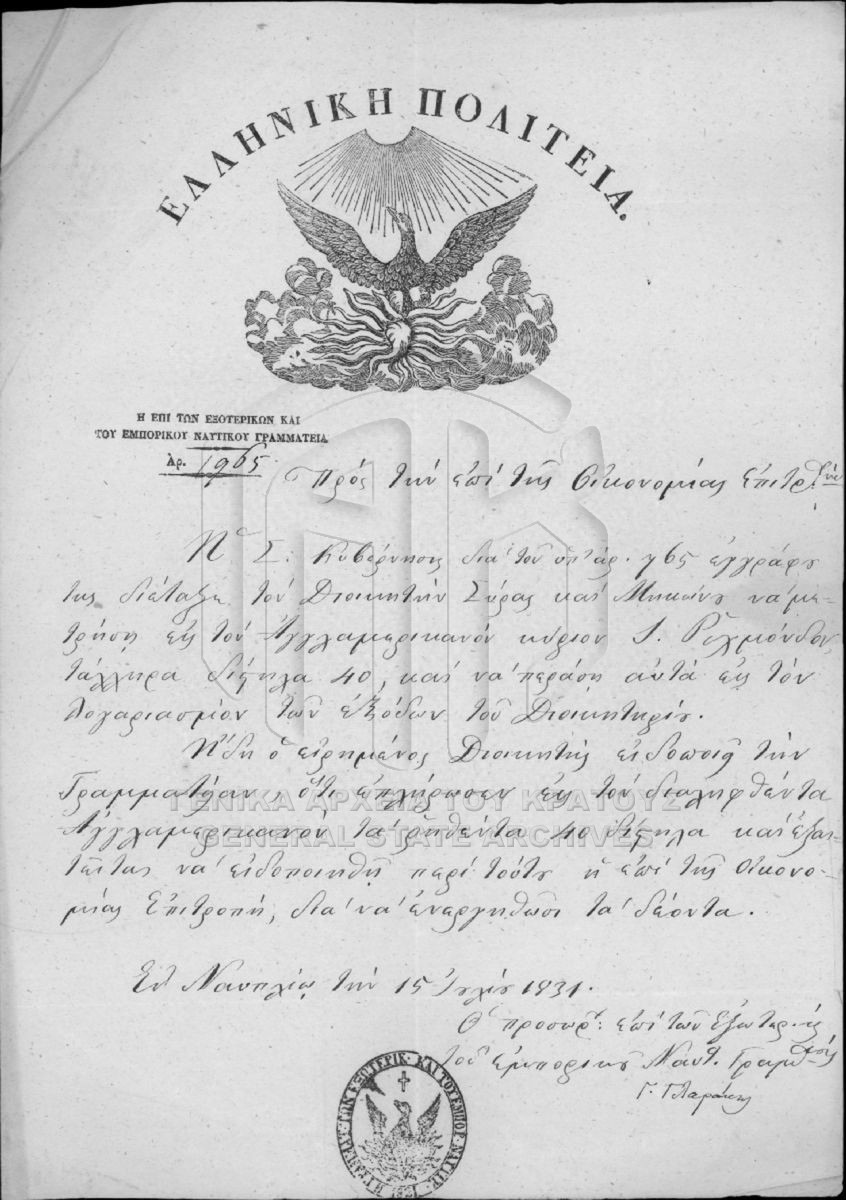 ΕΛΛΗΝΙΚΗ ΠΟΛΙΤΕΙΑ.
Η ΕΠΙ ΤΩΝ ΕΞΩΤΕΡΙΚΩΝ ΚΑΙ
ΤΟΥ ΕΜΠΟΡΙΚΟΥ ΝΑΥΤΙΚΟΥ ΓΡΑΜΜΑΤΕΙΑ
Ἀρ. 1965.
Πρὸς τὴν ἐπὶ τῆς Οἰκονομίας Ἐπιτρ.
Ἡ Σ: Κυβέρνησις διὰ τοῦ ὑπ' ἀρ. 765 ἐγγράφου
της διέταξε τὸν Διοικητὴν Σύρας καὶ Μυκόνου νὰ με-
τρήσῃ εἰς τὸν Ἀγγλαμερικανὸν κύριον
τάλληρα δίστηλα 40, καὶ νὰ περάσῃ αὐτὰ εἰς τὸν
λογαριασμὸν τῶν ἐξόδων τοῦ Διοικητηρίου.
Ἤδη ὁ εἰρημένος Διοικητὴς εἰδοποιεῖ τὴν
Γραμματείαν, ὅτι ἐπλήρωσεν εἰς τὸν διαληφθέντα
Ἀγγλαμερικανὸν τὰ ῥηθέντα 40 δίστηλα καὶ ἐξαι-
τεῖται νὰ εἰδοποιηθῇ περὶ τούτου ἡ ἐπὶ τῆς Οἰκονο-
μίας Ἐπιτροπή, διὰ νὰ ἐνεργηθῶσι τὰ δέοντα.
Ἐν Ναυπλίῳ τὴν 15 Ἰουλίου 1831.
Ὁ προσωρ: ἐπὶ τῶν Ἐξωτερικῶν
τοῦ ἐμπορικοῦ Ναυτ. Γραμ
Γ. Γλαράκης
ΓΕΝΙΚΑ ΑΡΧΕΙΑ ΤΟΥ ΚΡΑΤΟΥΣ
GENERAL STATE ARCHIVES